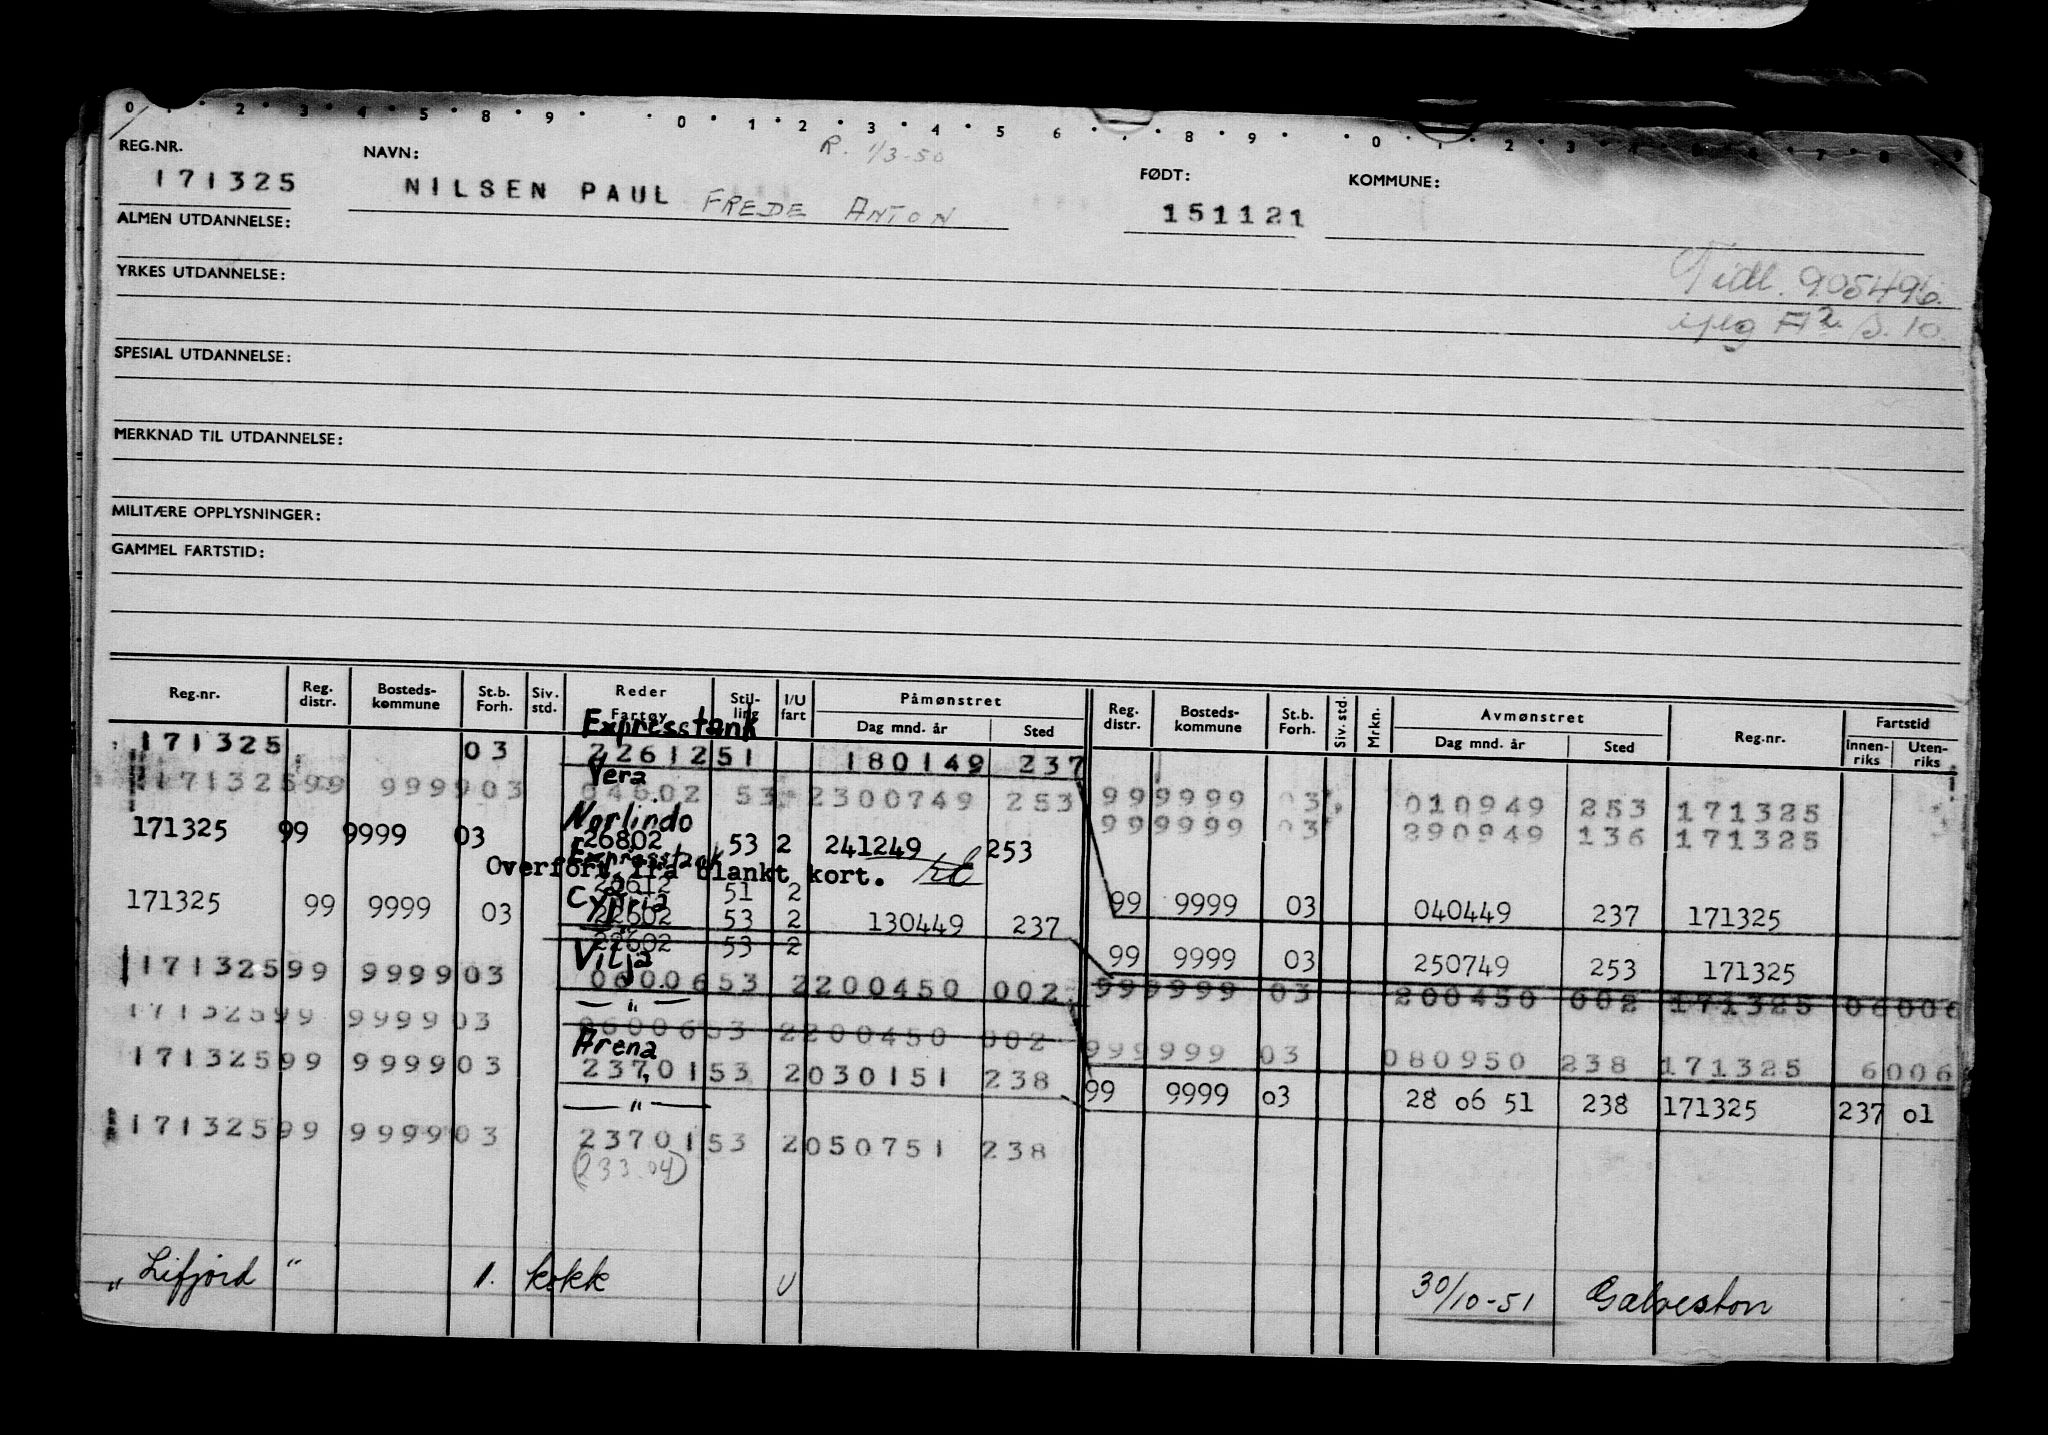 0 2 3 4 5 8 9 0 1 2 3 4 5 6 8 9 0 1 2 3 4 5 6 7 8 9
R. 1/3-50
REG.NR. NAVN: FØDT: KOMMUNE:
171325 NILSEN PAUL FREDE ANTON 151121
ALMEN UTDANNELSE:
Tidl. 905496.
YRKES UTDANNELSE:
A2 s. 10.
SPESIAL UTDANNELSE:
MERKNAD TIL UTDANNELSE:
MILITÆRE OPPLYSNINGER:
GAMMEL FARTSTID:
Reg.nr. Reg. distr. Bosteds-kommune St.b. Forh. Siv. std. Reder Fartøy Stil-ling I/U fart Påmønstret Dag mnd. år Sted Reg. distr. Bosteds-kommune St.b. Forh. Siv. std. Mrkn. Avmønstret Dag mnd. år Sted Reg.nr. Fartstid Innen-riks Uten-riks
Expresstank
171325 03 22612 51 180149 237
Vera
171325 99 9999 03 04602 53 2 300749 253 99 9999 03 010949 253 171325
99 9999 03 290949 136 171325
Norlindo
171325 99 9999 03 26802 53 2 241249 253
Expresstank
Overført fra blankt kort.
22612 51 2 99 9999 03 040449 237 171325
Cypria
171325 99 9999 03 22602 53 2 130449 237
" 22602 53 2 99 9999 03 250749 253 171325
Vilja
171325 99 9999 03 06006 53 2 200450 002 99 9999 03 200450 002 171325 06006
— " —
171325 99 9999 03 06006 53 2 200450 002 99 9999 03 080950 238 171325 6006
Arena
171325 99 9999 03 23701 53 2 030151 238 99 9999 03 28 06 51 238 171325 237 01
— " —
171325 99 9999 03 23701 53 2 050751 238
(233.04)
"Lifjord" 1. kokk U 30/10-51 Galveston